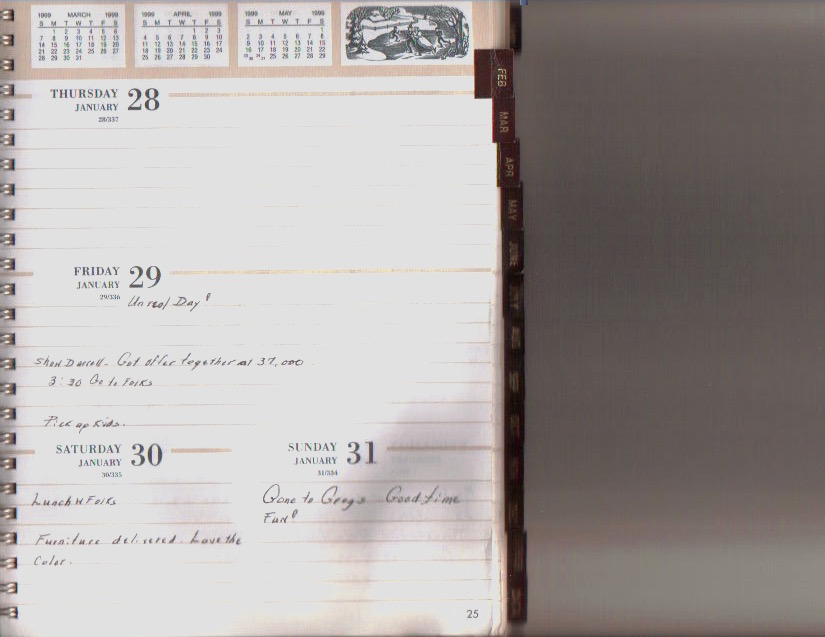 1999 MARCH 1999
S M T W T F S
1 2 3 4 5 6
7 8 9 10 11 12 13
14 15 16 17 18 19 20
21 22 23 24 25 26 27
28 29 30 31
1999 APRIL 1999
S M T W T F S
1 2 3
4 5 6 7 8 9 10
11 12 13 14 15 16 17
18 19 20 21 22 23 24
25 26 27 28 29 30
1999 MAY 1999
S M T W T F S
1
2 3 4 5 6 7 8
9 10 11 12 13 14 15
16 17 18 19 20 21 22
23 30 24 31 25 26 27 28 29
FEB
MAR
APR
MAY
JUNE
THURSDAY 28
JANUARY
28/337
FRIDAY 29
JANUARY
29/336
Unreal Day!
Show Darrell - Got offer together at 37,000
3:30 Go to Folks
Pick up Kids.
SATURDAY 30
JANUARY
30/335
Lunch W Folks
Furniture delivered. Love the
Color.
SUNDAY 31
JANUARY
31/334
Gone to Gregs Good time
Fun!
25